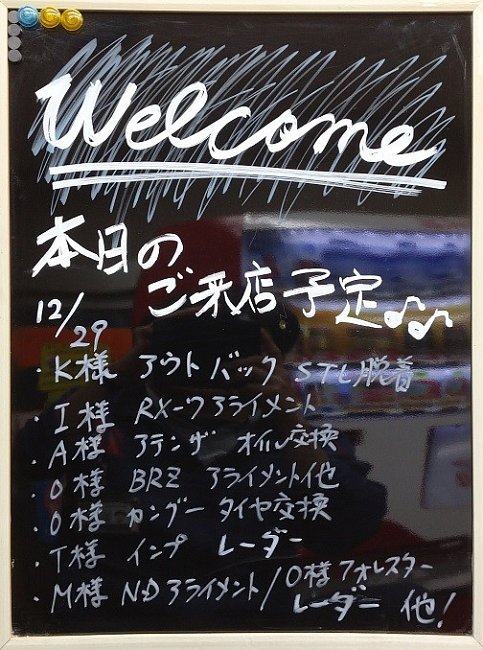 Welcome
本日の
ご来店予定♪♪
12/29
・K様 アウトバック STL脱着
・I様 RX-7アライメント
・A様 アテンザ オイル交換
・O様 BRZ アライメント他
・O様 カングー タイヤ交換
・T様 インプ レーダー
・M様 NDアライメント/O様フォレスター
レーダー 他!